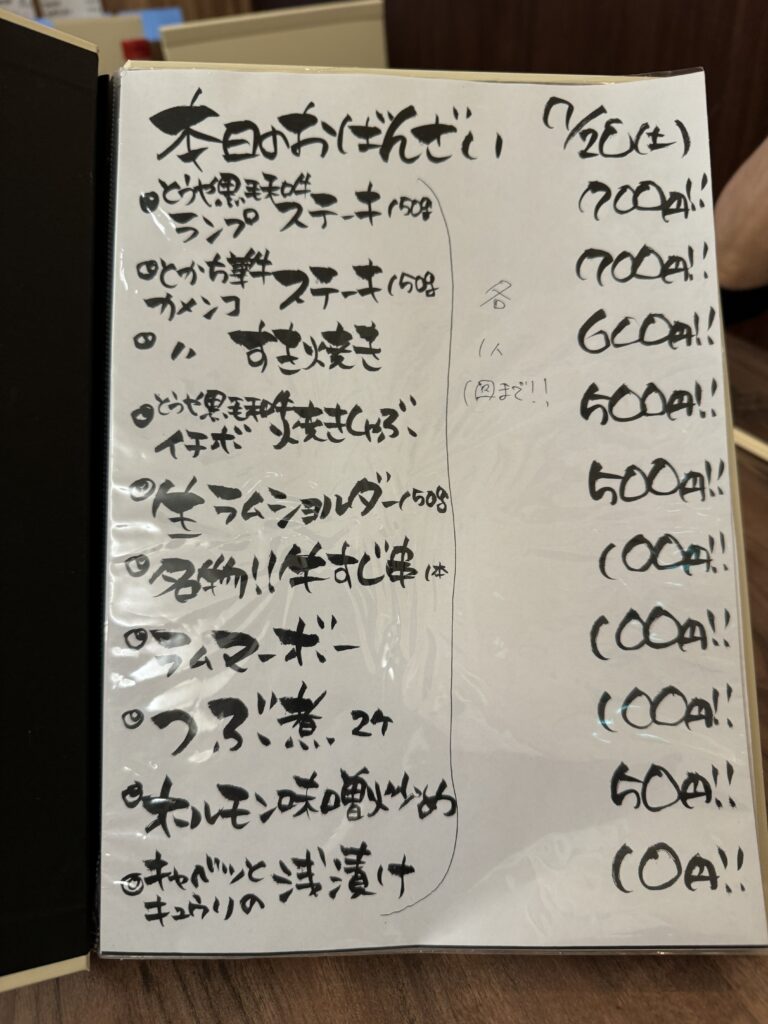 本日のおばんざい 7/26(土)
とうや黒毛和牛
ランプ ステーキ150g 700円!!
とかち華牛
カメンコ ステーキ150g 700円!!
〃 すき焼き 600円!!
とうや黒毛和牛
イチボ 焼きしゃぶ 500円!!
生ラムショルダー150g 500円!!
名物!!牛すじ串 1本 100円!!
ラムマーボー 100円!!
つぶ煮 2ケ 100円!!
ホルモン味噌炒め 50円!!
キャベツと
キュウリの 浅漬け 10円!!
各
1人
1回まで!!